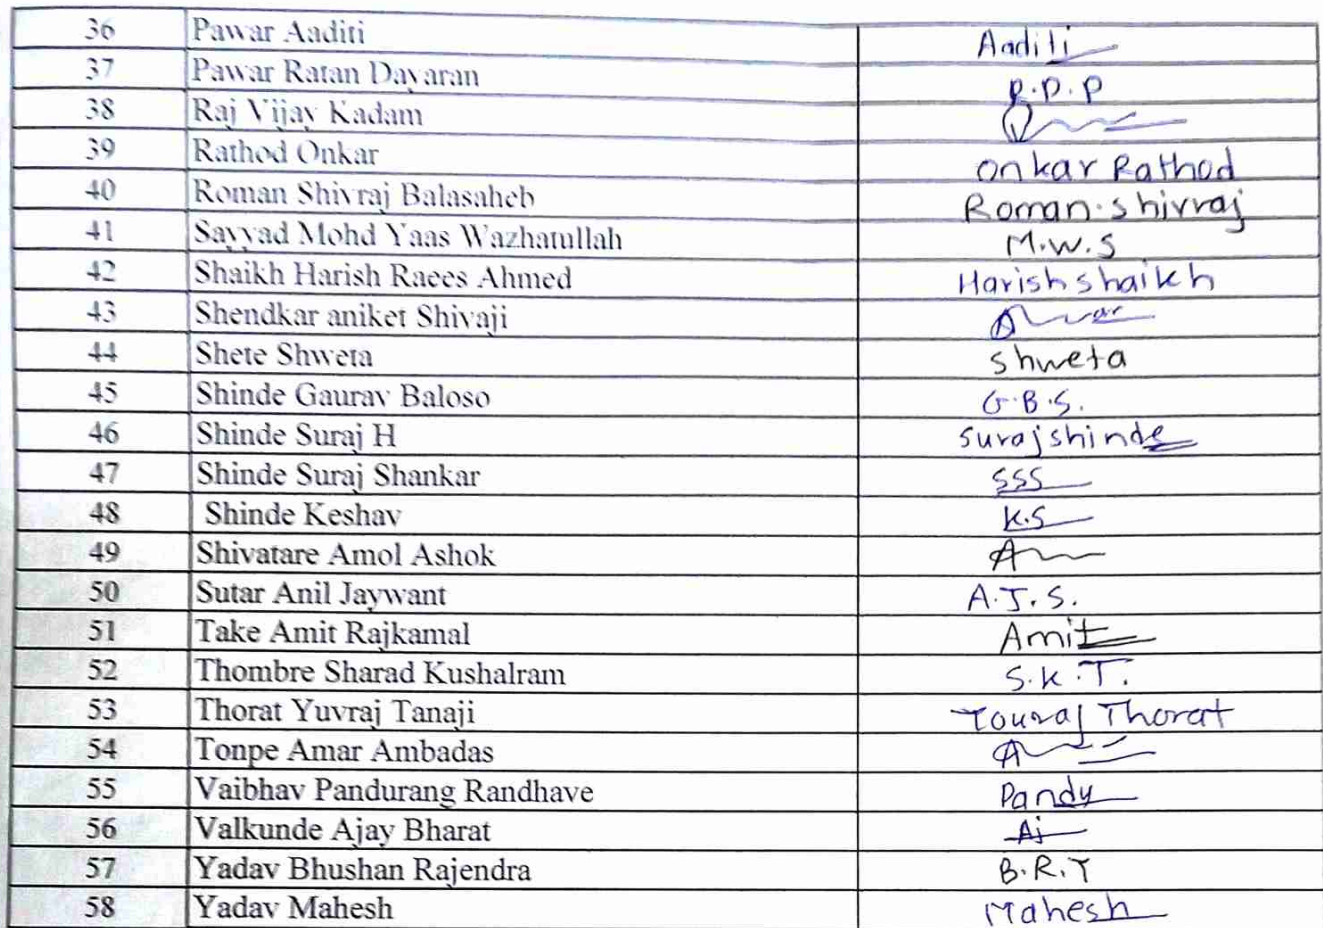 36 Pawar Aaditi Aaditi
37 Pawar Ratan Dayaran R.D.P
38 Raj Vijay Kadam
39 Rathod Onkar Onkar Rathod
40 Roman Shivraj Balasaheb Roman.shivraj
41 Sayyad Mohd Yaas Wazhatullah M.W.S
42 Shaikh Harish Raees Ahmed Harish shaikh
43 Shendkar aniket Shivaji
44 Shete Shweta shweta
45 Shinde Gaurav Baloso G.B.S.
46 Shinde Suraj H Suraj shinde
47 Shinde Suraj Shankar SSS
48 Shinde Keshav K.S
49 Shivatare Amol Ashok
50 Sutar Anil Jaywant A.J.S.
51 Take Amit Rajkamal Amit
52 Thombre Sharad Kushalram S.K.T.
53 Thorat Yuvraj Tanaji Thorat
54 Tonpe Amar Ambadas
55 Vaibhav Pandurang Randhave Pandu
56 Valkunde Ajay Bharat Aj
57 Yadav Bhushan Rajendra B.R.Y
58 Yadav Mahesh Mahesh